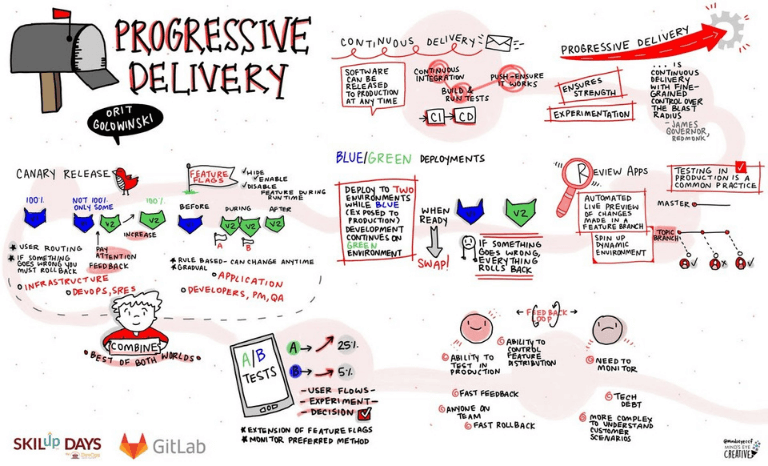 PROGRESSIVE
DELIVERY
ORIT
GOLDWINSKI
CONTINUOUS DELIVERY
SOFTWARE
CAN BE
RELEASED
TO PRODUCTION
AT ANY TIME
CONTINUOUS
INTEGRATION
BUILD &
RUN TESTS
PUSH-ENSURE
IT WORKS
CI
CD
PROGRESSIVE DELIVERY
ENSURES
STRENGTH
EXPERIMENTATION
... IS
CONTINUOUS
DELIVERY
WITH FINE-
GRAINED
CONTROL OVER
THE BLAST
RADIUS
-JAMES
GOVERNOR,
REDMONK
CANARY RELEASE
100%
NOT 100%
ONLY SOME
100%
V2
V2
INCREASE
* USER ROUTING
* IF SOMETHING
GOES WRONG YOU
MUST ROLLBACK
PAY
ATTENTION
FEEDBACK
INFRASTRUCTURE
DEVOPS, SRES
FEATURE
FLAGS
HIDE
ENABLE
DISABLE
FEATURE DURING
RUN TIME
BEFORE
DURING
AFTER
V2
V2
V2
A
B
* RULE BASED-CAN CHANGE ANYTIME
* GRADUAL
APPLICATION
DEVELOPERS, PM, QA
COMBINES
BEST OF BOTH WORLDS
BLUE/GREEN DEPLOYMENTS
DEPLOY TO TWO
ENVIRONMENTS
WHILE BLUE
(EXPOSED TO
PRODUCTION)
DEVELOPMENT
CONTINUES ON
GREEN
ENVIRONMENT
WHEN
READY
SWAP!
V2
IF SOMETHING
GOES WRONG,
EVERYTHING
ROLLS BACK
REVIEW APPS
AUTOMATED
LIVE PREVIEW
OF CHANGES
MADE IN A
FEATURE BRANCH
SPIN UP
DYNAMIC
ENVIRONMENT
TESTING IN
PRODUCTION IS A
COMMON PRACTICE
MASTER
TOPIC
BRANCH
A/B
TESTS
A
25%
B
5%
-USER FLOWS-
-EXPERIMENT-
-DECISION
* EXTENSION OF FEATURE FLAGS
* MONITOR PREFERRED METHOD
FEEDBACK
LOOP
ABILITY TO
TEST IN
PRODUCTION
ABILITY TO
CONTROL
FEATURE
DISTRIBUTION
FAST FEEDBACK
ANYONE ON
TEAM
FAST ROLLBACK
NEED TO
MONITOR
TECH
DEBT
MORE COMPLEX
TO UNDERSTAND
CUSTOMER
SCENARIOS
SKILup DAYS
GitLab
MIND'S EYE
CREATIVE